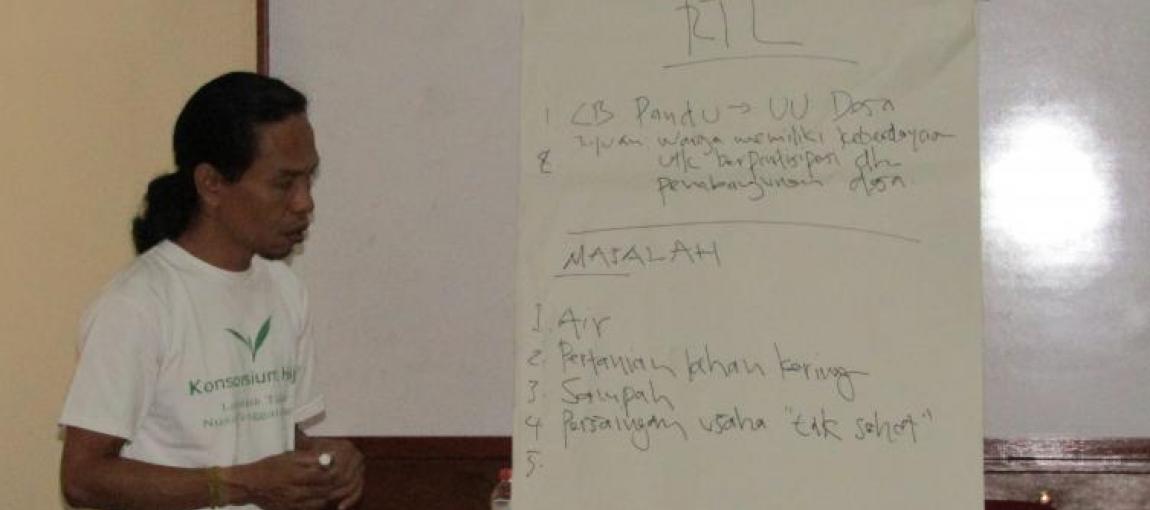 RTL
1 CB Pandu → UU Desa
Tujuan warga memiliki keberdayaan
2 utk berpartisipasi dlm
pembangunan desa.
MASALAH
1. Air
2. Pertanian lahan kering
3. Sampah
4 Persaingan usaha "tak sehat"
5.
Konsorsium Hij
Nusa Tenggara